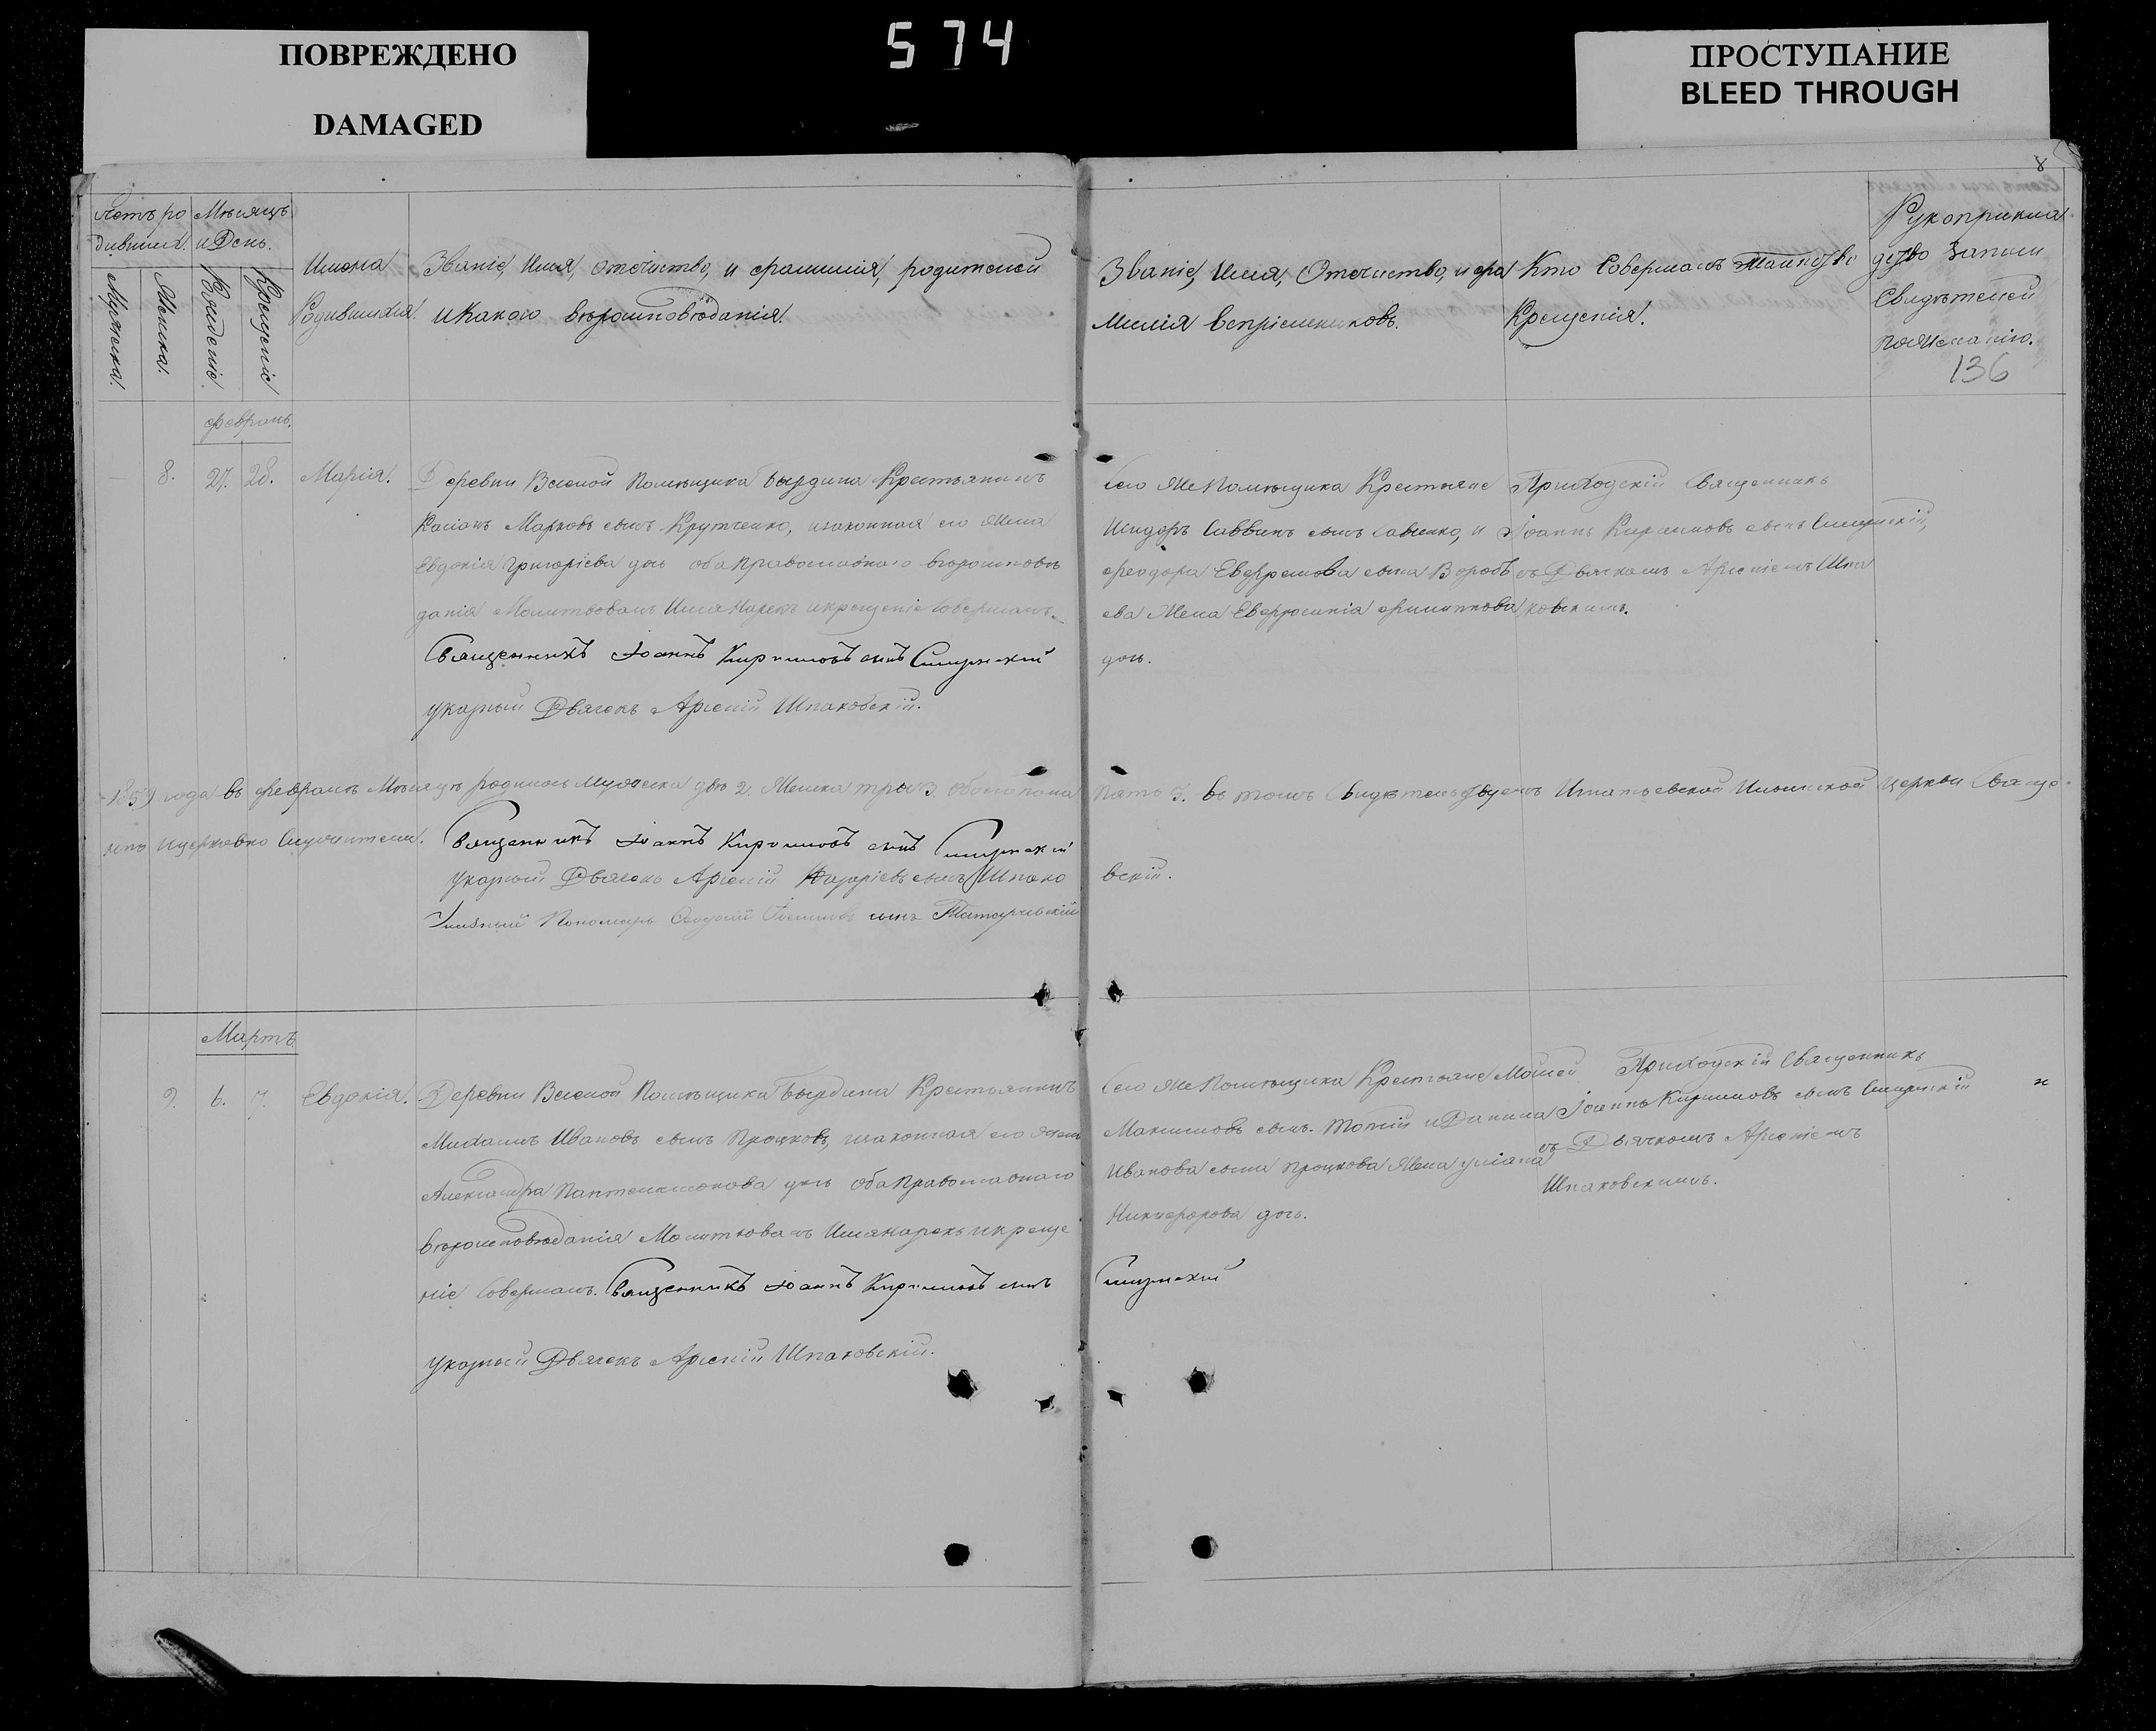 ПОВРЕЖДЕНО
DAMAGED
574
ПРОСТУПАНИЕ
BLEED THROUGH
8
Мѣсяцъ
и День.
Мужеска.
Женска.
Рожденіе.
Крещеніе
Имена
Родившихся.
Званіе, Имя, отечество, и фамилія, родителей
и Какого вѣроисповѣданія.
Званіе, Имя, Отечество, и фа
милія воспріемниковъ.
Кто Совершалъ Таинство
Крещенія.
Рукоприкла
дство Записи
Свидѣтелей
по Желанію.
136
февраль.
8.
27.
28.
Марія.
Деревни Веселой Помѣщика Бырдина Крестьянинъ
Касіанъ Марковъ сынъ Крутченко, и законная его Жена
Евдокія Григоріева дочь оба Православнаго вѣроисповѣ
данія Молитвовалъ Имя Нарекъ и крещеніе Совершалъ.
Священникъ Іоаннъ Кириловъ сынъ
указный Дьячекъ Арсеній Шпаковскій.
Того Же Помѣщика Крестьяне
Исидоръ Саввинъ сынъ Савченко, и
феодора Евфремова сына Вороб
ева Жена Евфросинія филиппова
дочь.
Приходскій Священникъ
Іоаннъ Кириловъ сынъ
съ Дьячкомъ Арсеніемъ Шпа
ковскимъ.
1859 года въ февралѣ Мѣсяцѣ родилось Мужеска двѣ 2. Женска три 3. обоего пола
пять 5. въ томъ Свидѣтельствуемъ Игнатьевской Ильинской церкви Свяще-
Священникъ Іоаннъ Кириловъ сынъ
указный Дьячекъ Арсеній сынъ Шпако
вскій.
Пономарь сынъ
Мартъ.
9.
6.
7.
Евдокія.
Деревни Веселой Помѣщика Бырдина Крестьянинъ
Михаилъ Ивановъ сынъ Процковъ, и законная его Жена
Александра Пантелимонова дочь оба Православнаго
вѣроисповѣданія Молитвовалъ Имя нарекъ и креще
ніе Совершалъ. Священникъ Іоаннъ Кириловъ сынъ
указный Дьячекъ Арсеній Шпаковскій.
Того Же Помѣщика Крестьяне Моисей
Максимовъ сынъ и Данила
Иванова сына Процкова Жена уліана
Никифорова дочь.
Приходскій Священникъ
Іоаннъ Кириловъ сынъ
съ Дьячкомъ Арсеніемъ
Шпаковскимъ.